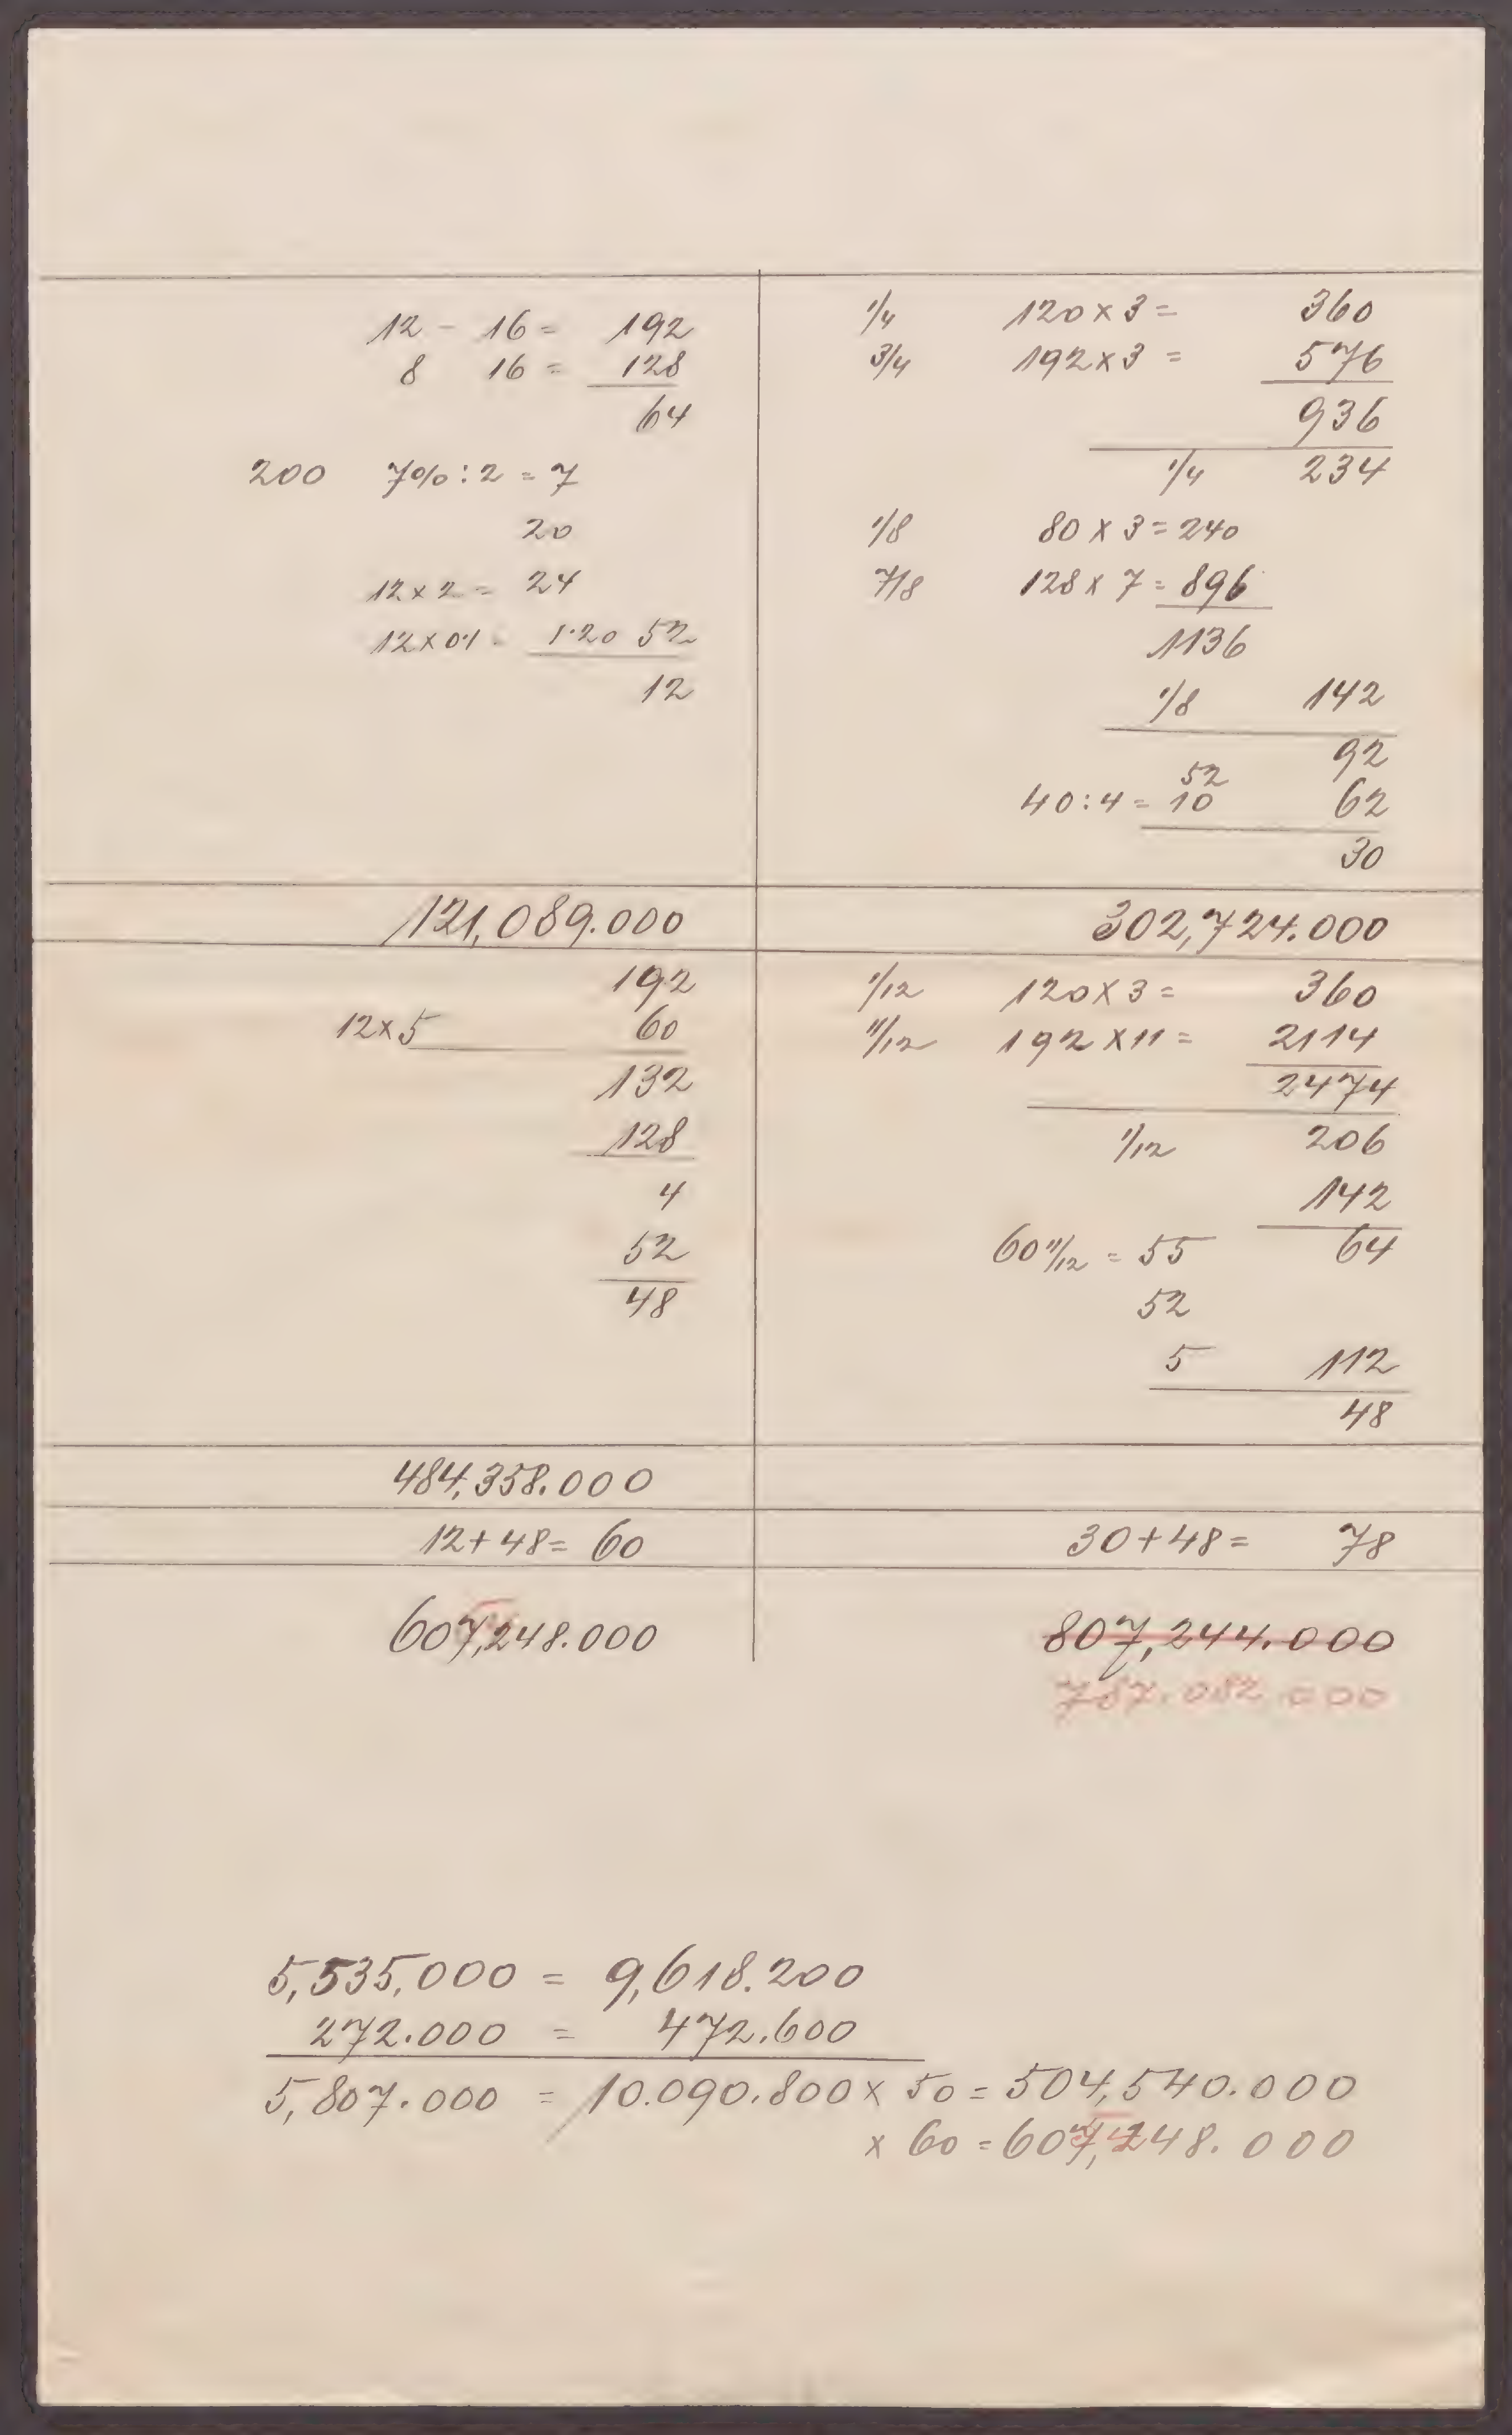 12 - 16 = 192
8 16 = 128
64
200 7% : 2 = 7
20
12 x 2 = 24
12 x 0.1 = 1.20 52
12
1/4 120 x 3 = 360
3/4 192 x 3 = 576
936
1/4 234
1/8 80 x 3 = 240
7/8 128 x 7 = 896
1136
1/8 142
92
52
40 : 4 = 10 62
30
121,089.000
302,724.000
192
12 x 5 60
132
128
4
52
48
1/12 120 x 3 = 360
11/12 192 x 11 = 2114
2474
1/12 206
142
60 11/12 = 55 64
52
5 112
48
484,358.000
12 + 48 = 60
30 + 48 = 78
607,248.000
807,244.000
787.082.000
5,535,000 = 9,618.200
272.000 = 472.600
5,807.000 = 10.090.800 x 50 = 504,540.000
x 60 = 607,248.000